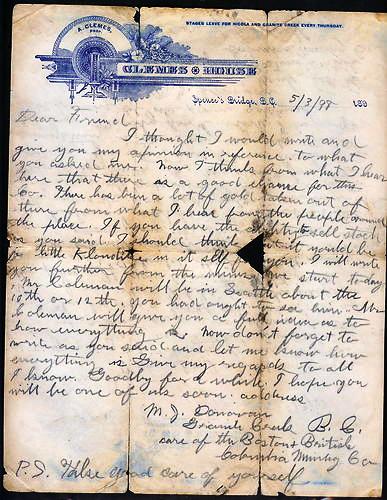 STAGES LEAVE FOR NICOLA AND GRANITE CREEK EVERY THURSDAY.
A. CLEMES,
PROP.
CLEMES HOUSE
Spence's Bridge, B.C. 5/3/98 189
Dear Friend
I thought I would write and
give you my opinion in reference to what
you asked me. Now I think from what I hear
here that there is a good chance for this
Co. There has bin a lot of gold taken out of
there from what I hear from the people around
the place. If you have the to sell stock
as you said I should think it would be
a little Klondike in it self you. I will write
you further from the mines we start to day
Mr Coleman will be in Seattle about the
10th or 12th, you had ought to see him. Mr
Coleman will give you a full news as to
how everything is. Now dont forget to
write as you said and let me know how
everything is Give my regards to all
I know. Goodby for a while. I hope you
will be one of us soon. address
M. J. Donovan
Granite Creek B. C.
care of the Boston & British
Columbia Mining Co
P.S. Take good care of yourself